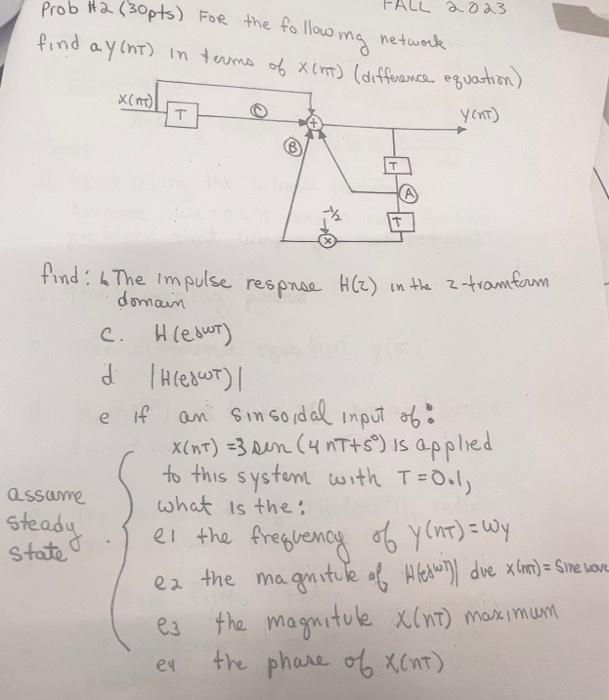 Prob #2 (30pts) FOR the following network
FALL 2023
find a y(nT) in terms of x(nT) (difference equation)
x(nT)
T
C
+
y(nT)
B
T
A
-1/2
T
x
find: b The impulse respnse H(z) in the z-tramform
domain
c. H(e^jωT)
d |H(e^jωT)|
e if an sinsoidal input of:
x(nT) = 3 sen (4nT+5°) is applied
to this system with T=0.1,
what is the:
e1 the frequency of y(nT) = ωy
e2 the magnitule of |H(e^jωT)| due x(nT) = Sine wave
e3 the magnitule x(nT) maximum
e4 the phase of x(nT)
assume
steady
state